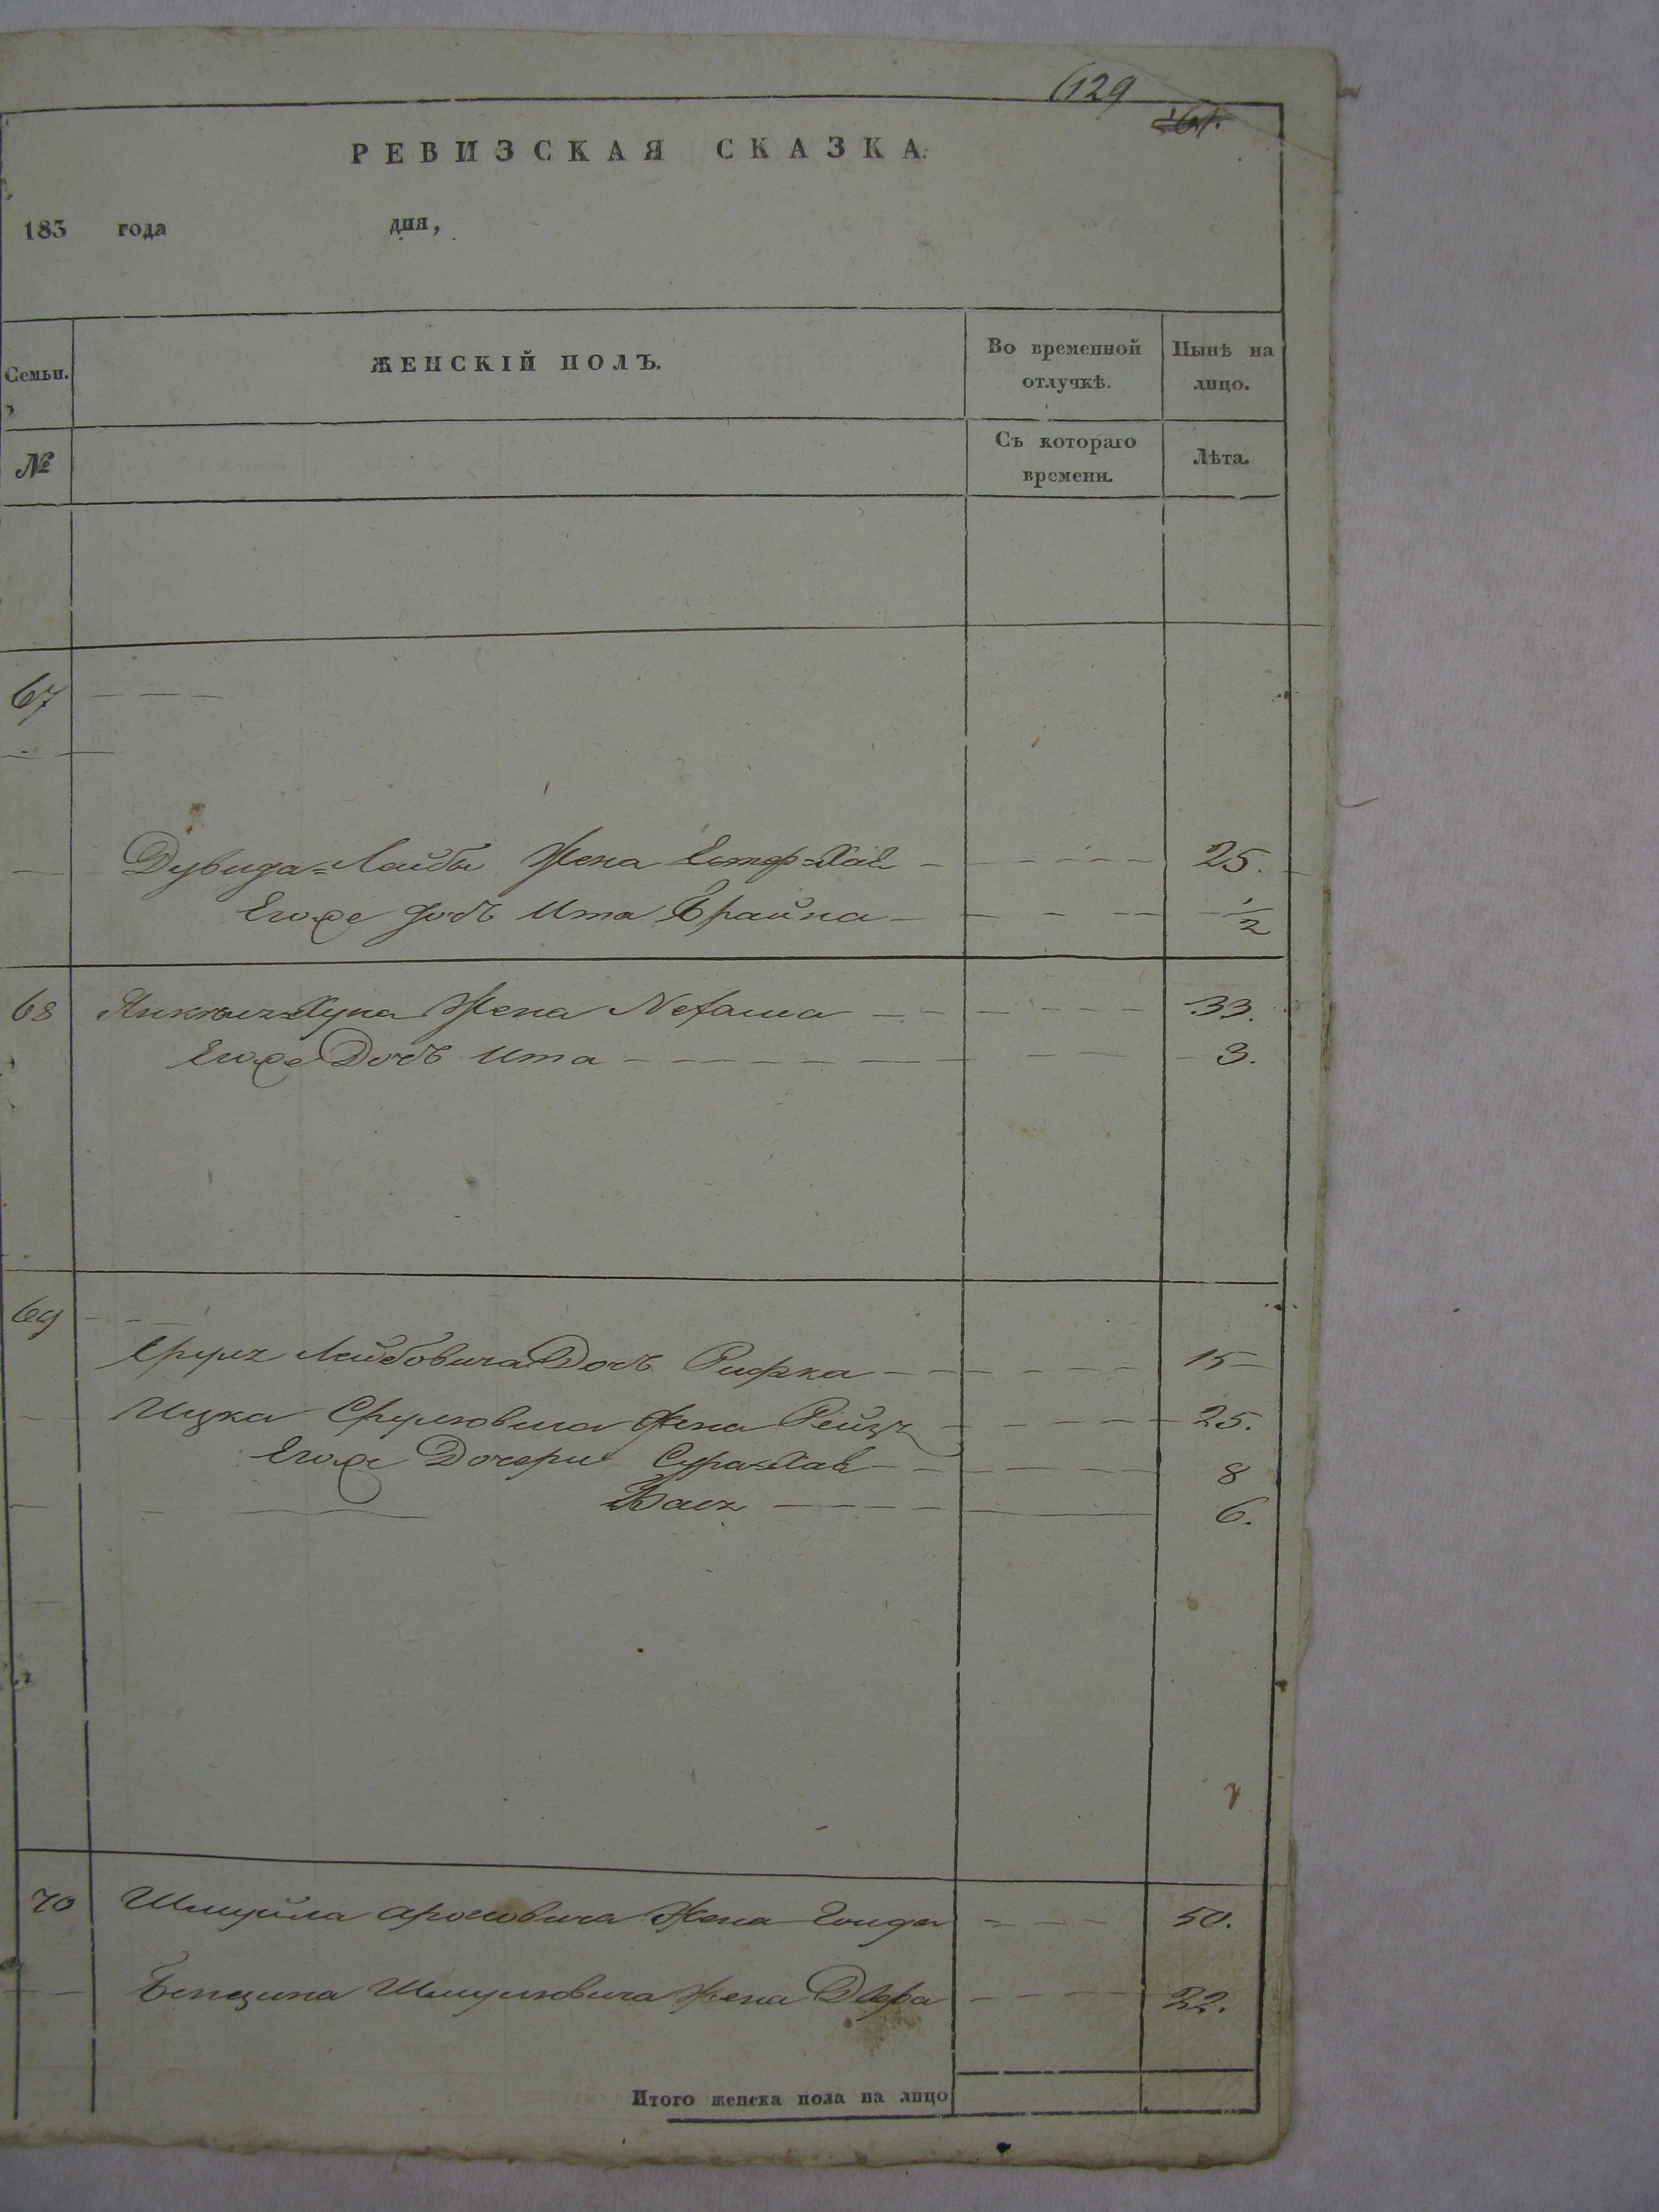 129
РЕВИЗСКАЯ СКАЗКА.
183 года дня,
Семьи. ЖЕНСКІЙ ПОЛЪ. Во временной отлучкѣ. Нынѣ на лицо.
№ Съ котораго времени. Лѣта.
67
Дувида=Лейбы Жена Естер=Хая 25.
Егоже дочь Ита Брайна 1/2
68 Жена Нехама 33.
Егоже Дочь Ита 3.
69
Сруля Лейбовича Дочь Рифка 15
Ицка Срулювича Жена Рейзя 25.
Егоже Дочери Сура=Хая 8
Бася 6.
70 Шмуйла Ароновича Жена 50.
Бенциона Шмулювича Жена Двера 32.
Итого женска пола на лицо